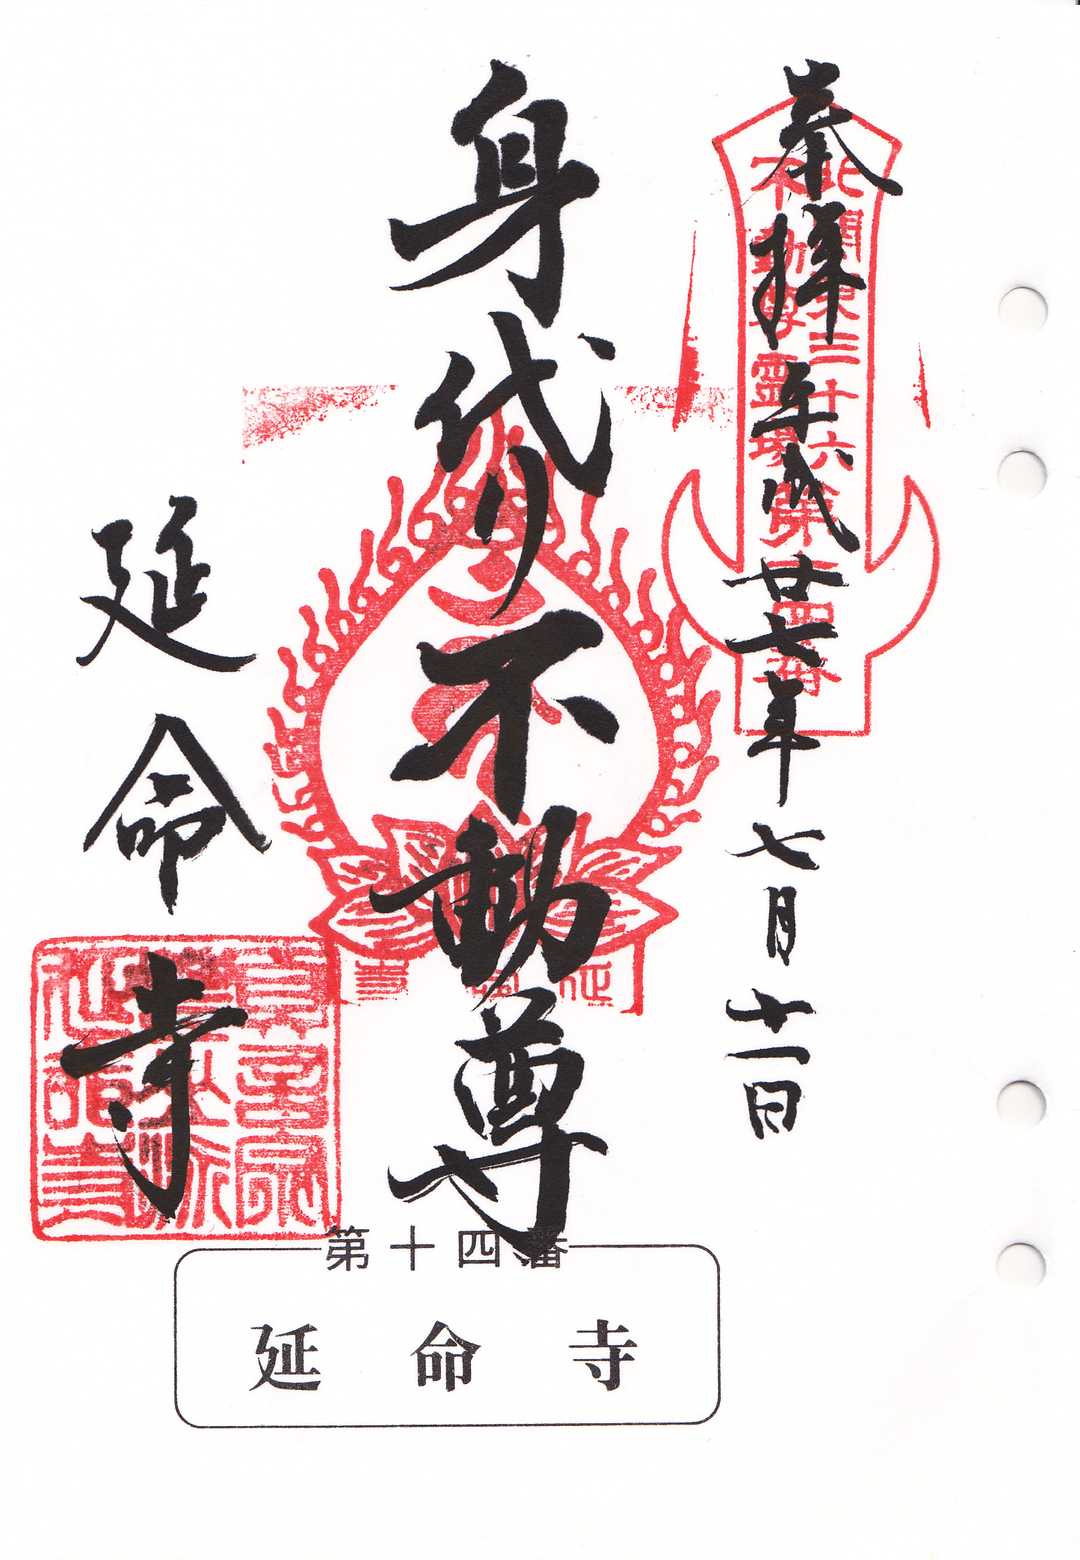 奉拝 平成廿七年 七月十一日
北関東三十六
不動尊霊場
第十四番
身代り不動尊
延命寺
第十四番
延命寺